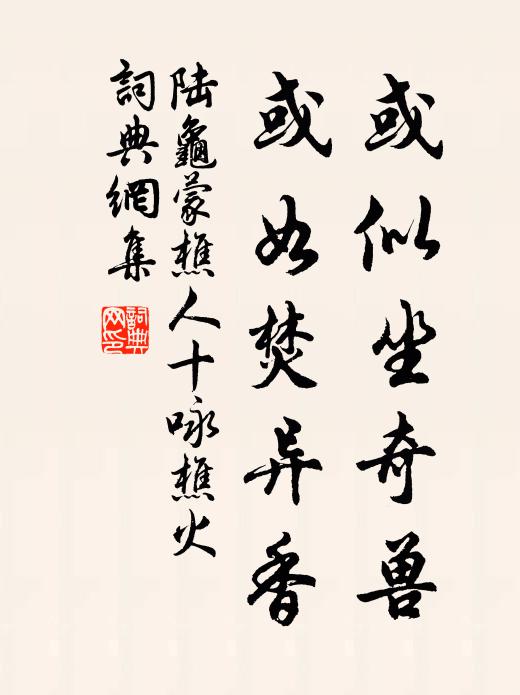 或似坐奇兽
或如焚异香
陆龜蒙樵人十咏樵火
詞典網集
詞典网印